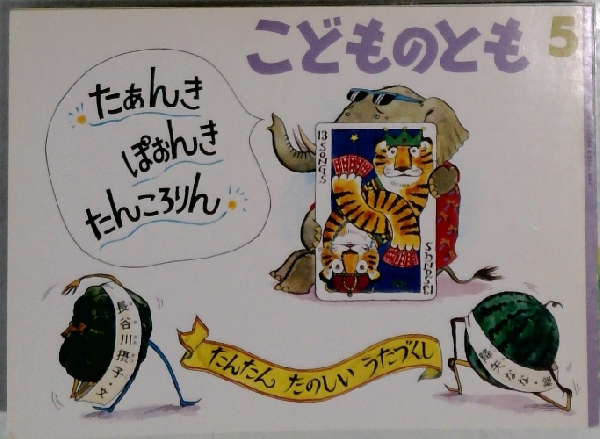 こどものとも 5
たぁんき
ぽぉんき
たんころりん
13 SONGS
13 SONGS
長谷川摂子・文
たんたん たのしい うたづくし
降矢なな・絵